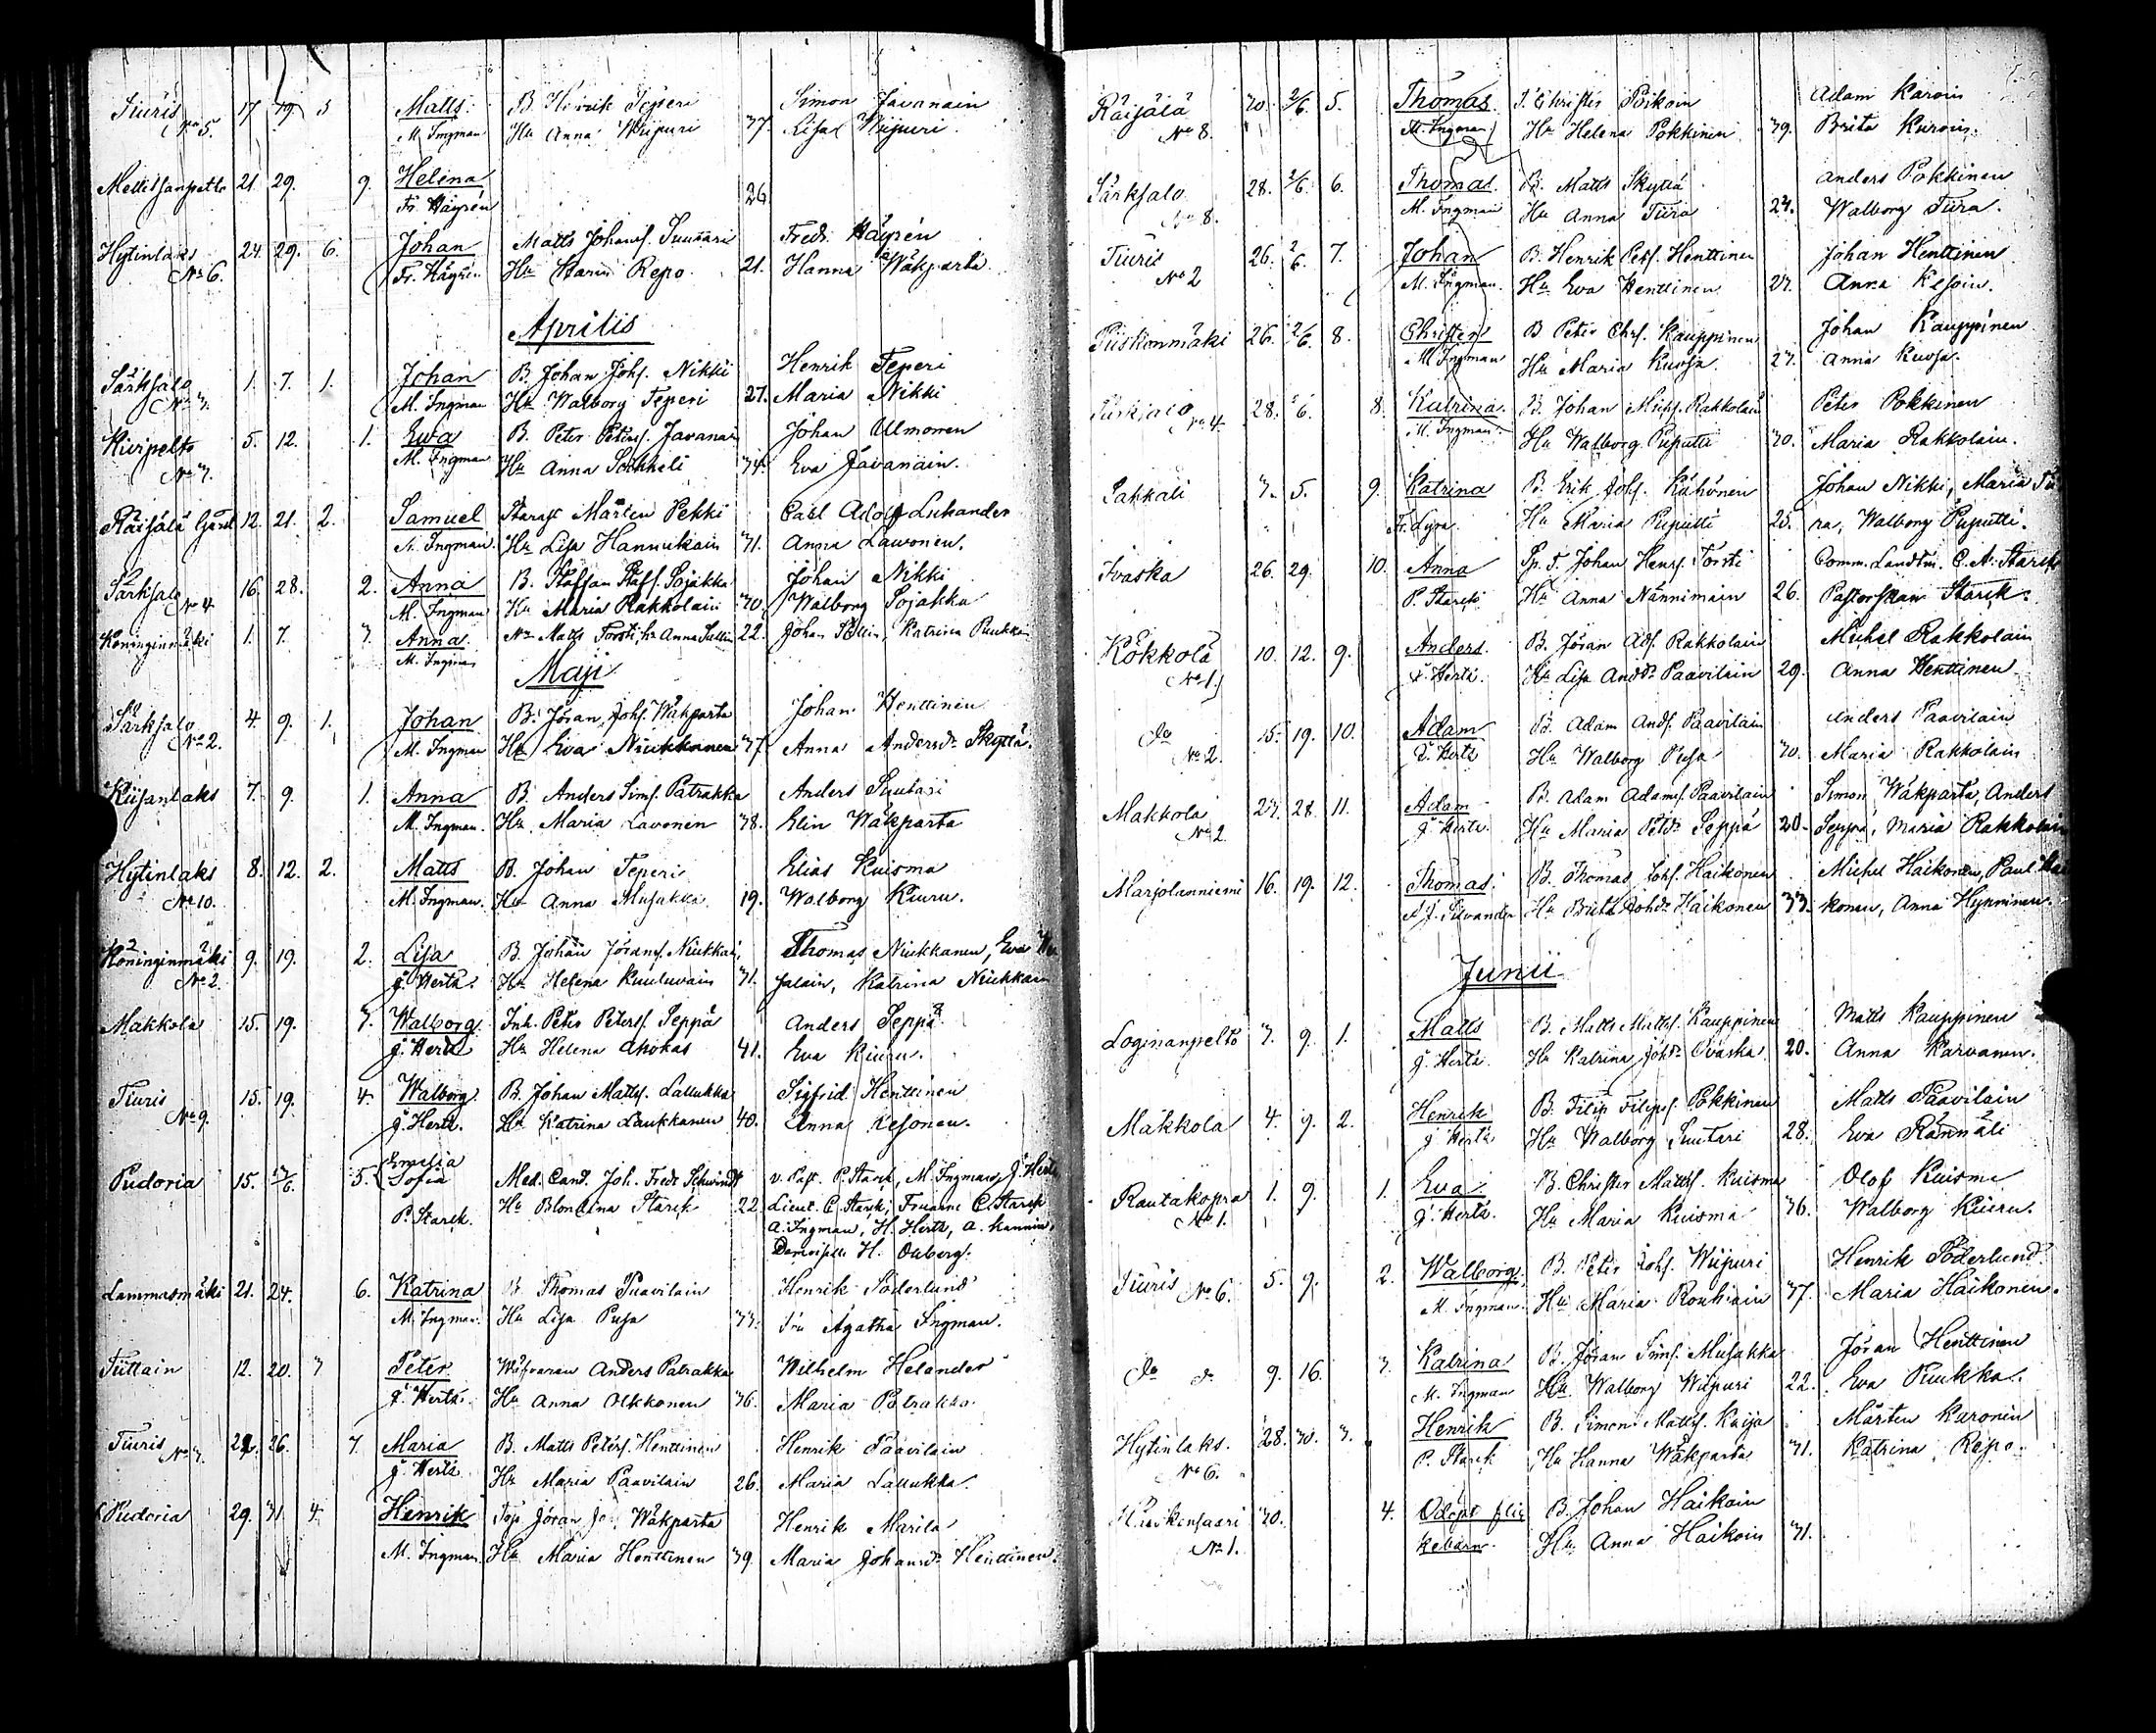 Tiuris 17. 19. 5 Matts B. Henrik Teperi Simon Javanain
No 5. M. Ingman Hu Anna Wiipuri 37. Lisa Wiipuri.
21. 29. 9. Helena
Fr. Häyrén 26.
Hytinlaks 24. 29. 6. Johan Matts Johans. Suutari Fredr. Häyrén
No 6. Fr. Häyrén Hu Karin Repo 21. Hanna Wäkparta
Aprilis
Särksalo 1. 7. 1. Johan B. Johan Johs. Nikki Henrik Teperi
No 3. M. Ingman Hu Walborg Teperi 27. Maria Nikki
Kiiripelto 5. 12. 1. Ewa B. Peter Peters. Javanain Johan Ulmonen
No 3. M. Ingman Hu Anna Sokkeli 34. Eva Javanain.
Räisälä Gård 12. 21. 2. Samuel Starast Mårten Pekki Carl Adolf Lukander
M. Ingman. Hu Lisa Hannukain 31. Anna Lawonen.
Särksalo 16. 28. 2. Anna B. Staffan Staff. Sojakka Johan Nikki
No 4. M. Ingman Hu Maria Rakkolain 30. Walborg Sojakka
Köninginmäki 1. 7. 3. Anna Matts Torsti, hu Anna Sallin 22. Johan Sallin, Katrina Puukka
M. Ingman
Maji
Särksalo 4. 9. 1. Johan B. Jöran Johs. Wäkparta Johan Henttinen
No 2. M. Ingman Hu Eva Niukkanen 37. Anna Andersdr Skyttä.
Riisanlaks 7. 9. 1. Anna B. Anders Sims. Patrakka Anders Suutari
M. Ingman. Hu Maria Lavonen 38. Elin Wäkparta
Hytinlaks 8. 12. 2. Matts B. Johan Teperi Elias Kuisma
No 10. M. Ingman. Hu Anna Musakka 19. Walborg Kiuru.
Köninginmäki 9. 19. 2. Lisa B. Johan Jörans. Niukkain Thomas Niukkanen, Eva
No 2. J. Hertz. Hu Helena Kuuluvain 31. Katrina Niukkain
Makkola 15. 19. 3. Walborg Inh. Peter Peters. Seppä Anders Seppä
J. Hertz Hu Helena Ahokas 41. Eva Kiuru.
Tiuris 15. 19. 4. Walborg B. Johan Matts. Lallukka Sigfrid Henttinen
No 9. J. Hertz. Hu Katrina Laukkanen 40. Anna Kesonen.
Emelia
Pudoria 15. 5. Sofia Med. Cand. Joh. Fredr Schwindt v. Past. P. Starck, M. Ingman, J. Hertz
P. Starck. Hu Blondina Starck 22. Lieut. C. Starck; Fruarne C. Starck
A. Ingman, H. Hertz, A.
Demoiselle H.
Lammasmäki 21. 24. 6. Katrina B Thomas Paavilain Henrik Söderlund
M. Ingman. Hu Lisa Pusa 33. Fru Agatha Ingman.
Tiittain 12. 20. 3 Peter Anders Patrakka Wilhelm Helander
J. Hertz. Hu Anna Olkkonen 36. Maria Patrakka
Tiuris 22. 26. 7. Maria B. Matts Peters. Henttinen Henrik Paavilain
No 3. J Hertz Hu Maria Paavilain 26. Maria Lallukka.
Pudoria 29. 31. 4. Henrik Jöran Jo. Wäkparta Henrik Marila
M. Ingman. Hu Maria Henttinen 39. Maria Johansdr Henttinen.
Räisälä 30. 2/6. 5. Thomas Christer Poikoin Adam Karoin
No 8. M. Ingman Hu Helena Pokkinen 39. Brita Kuroin.
Särksalo 28. 2/6. 6. Thomas. B. Matts Skyttä Anders Pokkinen
No 8. M. Ingman Hu Anna Tiira 24. Walborg Tiira.
Tiuris 26. 2/6. 7. Johan B. Henrik Pers. Henttinen Johan Henttinen
No 2 M. Ingman. Hu Eva Henttinen 27. Anna Kesoin.
Piiskonmäki 26. 2/6. 8. Christer B Peter Chrs. Kauppinen Johan Kauppinen
M. Ingman Hu Maria Kuosa 27. Anna Kuosa.
Särksalo 28. 6. 8. Katrina. B. Johan Michs. Rakkolain Peter Pokkinen
No 4. M. Ingman. Hu Walborg Puputti 30. Maria Rakkolain.
Sakkali 3. 5. 9. Katrina B. Erik Johs. Kähönen Johan Nikki, Maria Tii
Fr. Lyra. Hu Maria Puputti 25. ra, Walborg Puputti.
Ivaska 26. 29. 10. Anna Johan Henrs. Torsti Comm. Landtm. C. A. Starck
P. Starck Hu Anna Nännimäin 26. Pastorskan Starck.
Kökkölä 10. 12. 9. Anders. B. Jöran Ads. Rakkolain Michel Rakkolain
No 1. J. Hertz. Hu Lisa Andr. Paavilain 29. Anna Henttinen.
Do 15. 19. 10. Adam B. Adam Ands. Paavilain Anders Paavilain
No 2. J. Hertz Hu Walborg Pusa 30. Maria Rakkolain
Makkola 23. 28. 11. Adam B. Adam Adams. Paavilain Simon Wäkparta, Anders
No 2. J. Hertz. Hu Maria Petdr Seppä 20. Seppä, Maria Rakkolain
Marjolanniemi 16. 19. 12. Thomas. B. Thomas Johs. Haikonen Michel Haikonen, Paul Hai
Hu Brita Johdr Haikonen 33. konen, Anna Hynninen.
Junii
Loginanpelto 3. 9. 1. Matts B. Matts Matts. Kauppinen Matts Kauppinen
J. Hertz. Hu Katrina Johdr Ovaska 20. Anna Karvanen.
Makkola 4. 9. 2. Henrik B. Filip Filips. Pokkinen Matts Paavilain
J Hertz Hu Walborg Suutari 28. Eva Rännäli
Rautakopra 1. 9. 1. Eva B. Christer Matts. Kuisma Olof Kuisma
No 1. J. Hertz. Hu Maria Kuisma 36. Walborg Kiuru.
Tiuris No 6. 5. 9. 2. Walborg B. Peter Johs. Wiipuri Henrik Söderlund
M. Ingman. Hu Maria Rouhiain 37. Maria Haikonen.
Do 9. 16. 3. Katrina B. Jöran Sims. Musakka Jöran Henttinen
M. Ingman Hu Walborg Wiipuri 22. Eva Puukka.
Hytinlaks. 28. 30. 3. Henrik B. Simon Matts. Kaija Mårten Karonen
No 6. P. Starck Hu Hanna Wäkparta 31. Katrina Repo.
30. 4. Odöpt flic B. Johan Haikoin
No 1. kebarn. Hu Anna Haikoin 31.